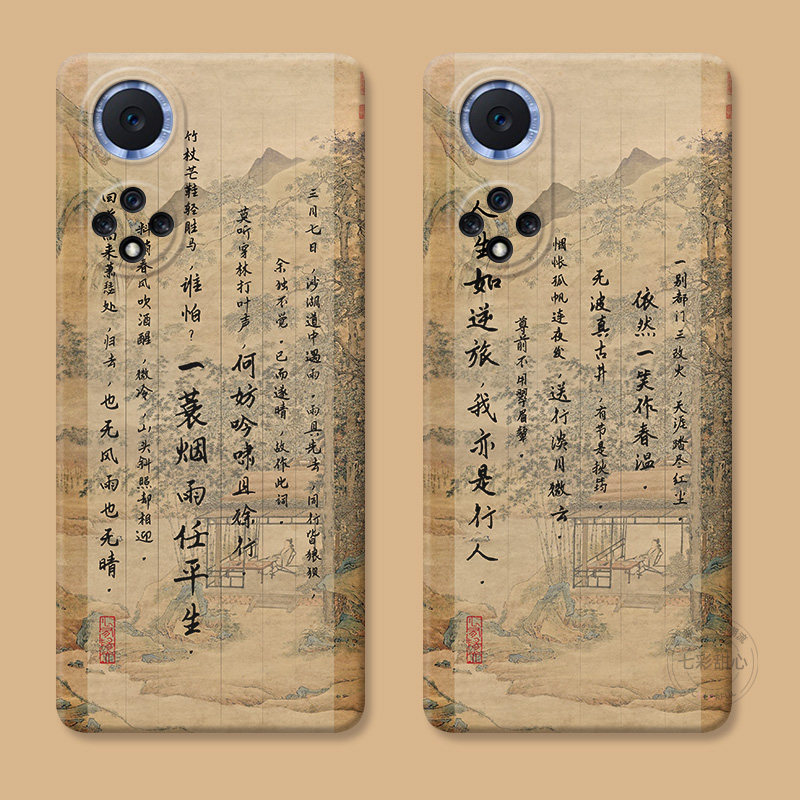 三月七日，沙湖道中遇雨，雨具先去，同行皆狼狈，
余独不觉。已而遂晴，故作此词。
莫听穿林打叶声，何妨吟啸且徐行
竹杖芒鞋轻胜马，谁怕？一蓑烟雨任平生。
料峭春风吹酒醒，微冷，山头斜照却相迎。
回首向来萧瑟处，归去，也无风雨也无晴。
一别都门三改火，天涯踏尽红尘。
依然一笑作春温。
无波真古井，有节是秋筠。
惆怅孤帆连夜发，送行淡月微云。
尊前不用翠眉颦。
人生如逆旅，我亦是行人。
七彩甜心